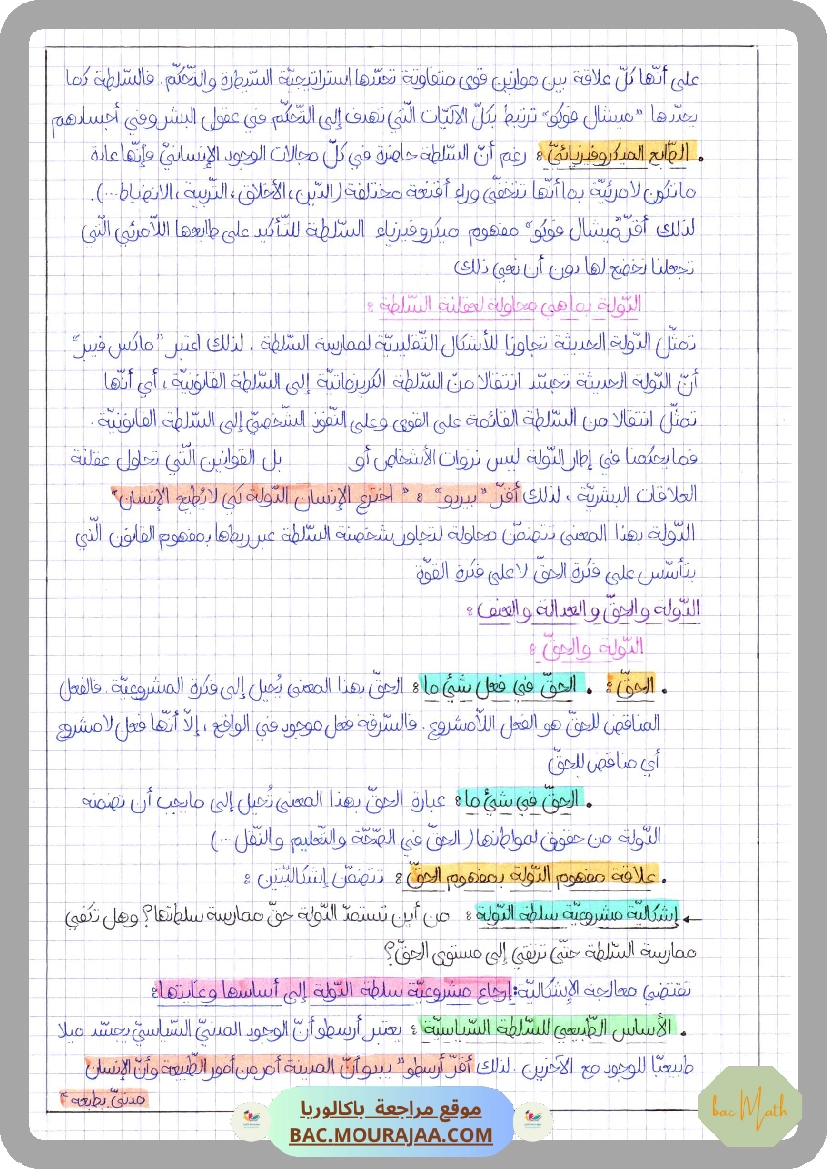 على أنّها كلّ علاقة بين موازين قوى متفاوتة تحدّدها استراتيجيّة السّيطرة والتّحكّم. فالسّلطة كما
يحدّدها "ميشال فوكو" ترتبط بكلّ الآليّات الّتي تهدف إلى التّحكّم في عقول البشر وفي أجسادهم
. الطّابع الميكروفيزيائيّ: رغم أنّ السّلطة حاضرة في كلّ مجالات الوجود الإنسانيّ فإنّها عادة
ما تكون لا مرئيّة بما أنّها تتخفّى وراء أقنعة مختلفة (الدّين، الأخلاق، التّربية، الانضباط...).
لذلك أقرّ "ميشال فوكو" مفهوم ميكروفيزياء السّلطة للتّأكيد على طابعها اللّامرئي الّتي
تجعلنا نخضع لها دون أن نعي ذلك
الدّولة بما هي محاولة لعقلنة السّلطة:
تمثّل الدّولة الحديثة تجاوزا للأشكال التّقليديّة لممارسة السّلطة. لذلك اعتبر "ماكس فيبر"
أنّ الدّولة الحديثة تجسّد انتقالا من السّلطة الكريزماتيّة إلى السّلطة القانونيّة، أي أنّها
تمثّل انتقالا من السّلطة القائمة على القوى وعلى النّفوذ الشّخصيّ إلى السّلطة القانونيّة.
فما يحكمنا في إطار الدّولة ليس نزوات الأشخاص أو بل القوانين الّتي تحاول عقلنة
العلاقات البشريّة، لذلك أقرّ "بيردو": "اخترع الإنسان الدّولة كي لا يُطيع الإنسان"
الدّولة بهذا المعنى تتضمّن محاولة لتجاوز شخصنة السّلطة عبر ربطها بمفهوم القانون الّتي
يتأسّس على فكرة الحقّ لا على فكرة القوّة
الدّولة والحقّ والعدالة والعنف:
الدّولة والحقّ:
. الحقّ: . الحقّ في فعل شيء ما: الحقّ بهذا المعنى يُحيل إلى فكرة المشروعيّة. فالفعل
المناقض للحقّ هو الفعل اللّامشروع. فالسّرقة فعل موجود في الواقع، إلّا أنّها فعل لامشروع
أي مناقض للحقّ
. الحقّ في شيء ما: عبارة الحقّ بهذا المعنى تُحيل إلى ما يجب أن تضمنه
الدّولة من حقوق لمواطنها (الحقّ في الصّحّة والتّعليم والنّقل...)
. علاقة مفهوم الدّولة بمفهوم الحقّ: تتضمّن إشكاليّتين:
← إشكاليّة مشروعيّة سلطة الدّولة: من أين تستمدّ الدّولة حقّ ممارسة سلطتها؟ وهل تكفي
ممارسة السّلطة حتّى ترتقي إلى مستوى الحقّ؟
تقتضي معالجة الإشكاليّة: إرجاع مشروعيّة سلطة الدّولة إلى أساسها وغايتها:
. الأساس الطّبيعي للسّلطة السّياسيّة: يعتبر أرسطو أنّ الوجود المدنيّ السّياسيّ يجسّد ميلا
طبيعيّا للوجود مع الآخرين. لذلك أقرّ أرسطو "يبدو أنّ المدينة أمر من أمور الطّبيعة وأنّ الإنسان
مدنيّ بطبعه"
موقع مراجعة باكالوريا
BAC.MOURAJAA.COM
bac Math